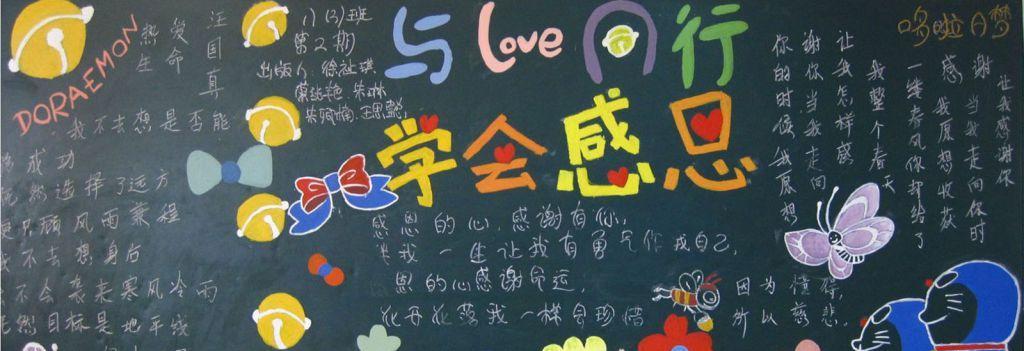 DORAEMON
热爱
生命
汪国真
我不去想是否能
成功
然选择了远方
只顾风雨兼程
不去想身后
不会袭来寒风冷雨
然目标是地平线
1(3)班
第2期
出版人:徐
与Love同行
学会感恩
感恩的心,感谢有你,
我一生让我有勇气作我自己,
恩的心感谢命运,
花开花落我一样会珍惜
因为懂得,
所以慈悲.
哆啦A梦
感谢
让我感谢你
当我走向你时
我原想收获
一缕春风你却给了
我整个春天
让我怎样感
谢你当我走向
你的时候我原想